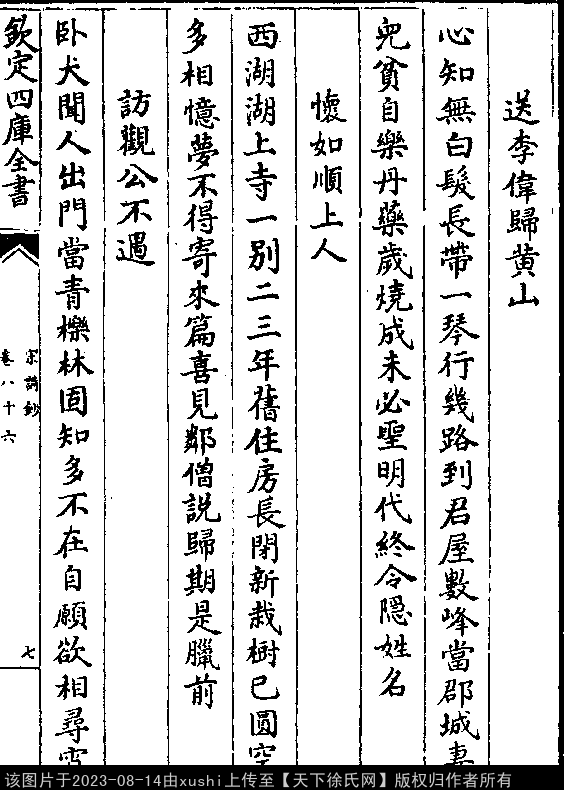 送李偉歸黄山
心知無白髮長帶一琴行幾路到君屋數峰當郡城妻
兒貧自樂丹藥歲燒成未必聖明代終令隱姓名
懷如順上人
西湖湖上寺一别二三年舊住房長閉新栽樹已圓空
多相憶夢不得寄來篇喜見鄰僧説歸期是臘前
訪觀公不遇
卧犬聞人出門當青櫟林固知多不在自願欲相尋雪
欽定四庫全書
宋詩鈔
卷八十六
七
该图片于2023-08-14由xushi上传至【天下徐氏网】版权归作者所有